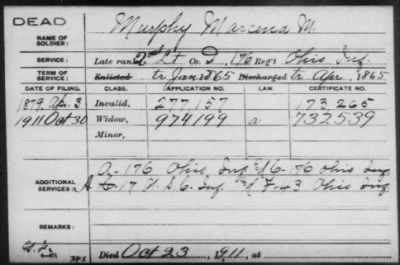 DEAD
NAME OF SOLDIER: Murphy Marcena M.
SERVICE: Late rank 2d Lt Co. D, 176 Reg't Ohio Inf.
TERM OF SERVICE: Enlisted tr Jan 1865 Discharged tr Apr., 1865
DATE OF FILING. CLASS. APPLICATION NO. LAW. CERTIFICATE NO.
1879 Apr. 3 Invalid, 277,157 173,265
1911 Oct 30 Widow, 974199 a 732539
Minor,
ADDITIONAL SERVICES: A-176 Ohio Inf & C-176 Ohio Inf
A 17 U.S.C. Inf & F-43 Ohio Inf
REMARKS:
Died Oct 23, 1911, at